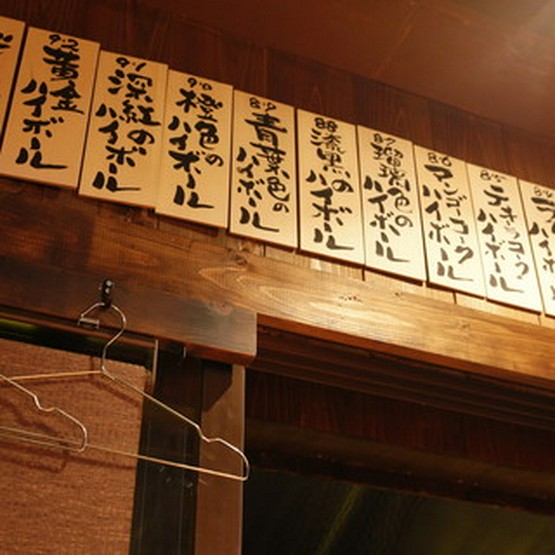 92
黄金
ハイボール
91
深紅の
ハイボール
90
橙色の
ハイボール
89
青葉色の
ハイボール
88
漆黒の
ハイボール
87
瑠璃色の
ハイボール
86
マンゴーコーク
ハイボール
85
テキーラコーク
ハイボール